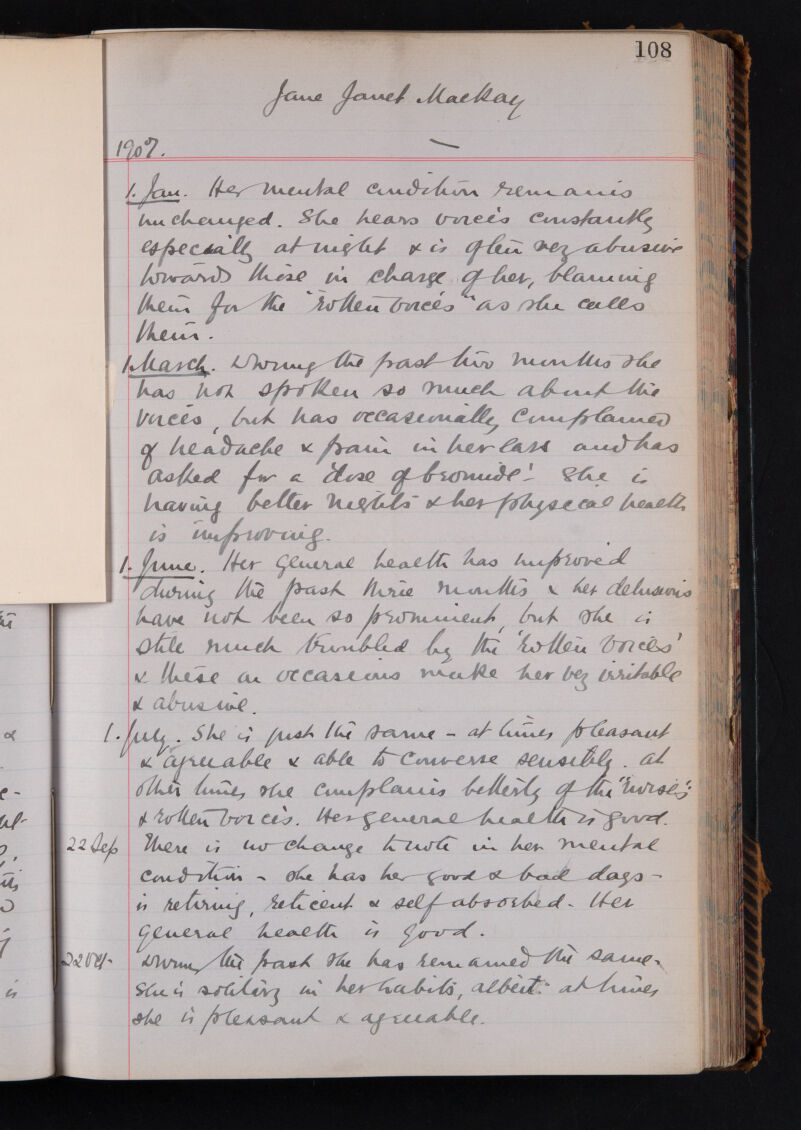 108
Jane Janet Mackay
1907.
1. Jan. Her mental condition remains
unchanged. She hears voices constantly
especially at night & is often very abusive
towards those in charge of her, blaming
them for the "rotten voices" as she calls
them.
1. March. During the past two months she
has not spoken so much about the
voices, but has occasionally complained
of headache & pain in her and has
asked for a 'dose of bromide'. She is
having better nights & her physical health
is improving.
1. June. Her general health has improved
during the past three months & her delusions
have not been so prominent, but she is
still much troubled by the 'rotten voices'
& these on occasions make her very irritable
& abusive.
1. July. She is just the same - at times pleasant
& agreeable & able to converse sensibly. at
other times she complains bitterly of the "
& rotten voices. Her general health is good.
22 Sep There is no change to note in her mental
condition - she has her good & bad days -
is retiring, reticent & self absorbed. Her
general health is good.
22 Oct - During the past she has remained the same -
She is solitary in her habits, albeit at times
she is pleasant & agreeable.